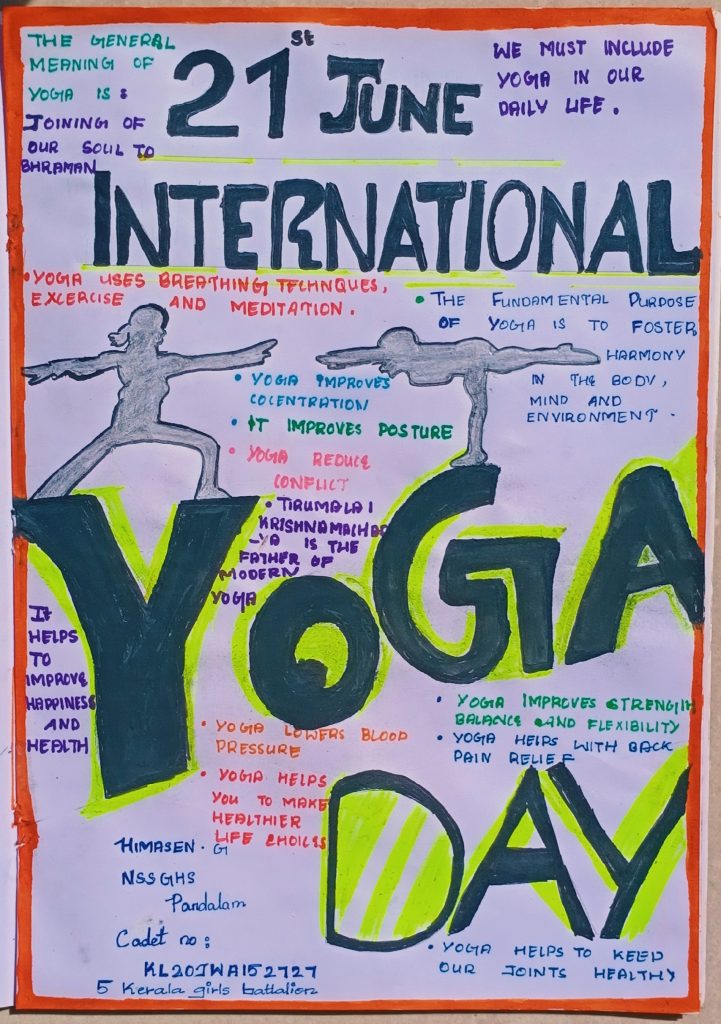 THE GENERAL
MEANING OF
YOGA IS :
JOINING OF
OUR SOUL TO
BHRAMAN
21st JUNE
WE MUST INCLUDE
YOGA IN OUR
DAILY LIFE.
INTERNATIONAL
• YOGA USES BREATHING TECHNQUES,
EXCERCISE AND MEDITATION.
• THE FUNDAMENTAL PURPOSE
OF YOGA IS TO FOSTER
HARMONY
IN THE BODY,
MIND AND
ENVIRONMENT.
• YOGA IMPROVES
COCENTRATION
• IT IMPROVES POSTURE
• YOGA REDUCE
CONFLICT
• TIRUMALAI
KRISHNAMACHAR
-YA IS THE
FATHER OF
MODERN
YOGA
YOGA
IT
HELPS
TO
IMPROVE
HAPPINESS
AND
HEALTH
• YOGA IMPROVES STRENGTH
BALANCE AND FLEXIBILITY
• YOGA HELPS WITH BACK
PAIN RELIEF
• YOGA LOWERS BLOOD
PRESSURE
• YOGA HELPS
YOU TO MAKE
HEALTHIER
LIFE CHOICES
DAY
HIMASEN. G
NSSGHS
Pandalam
Cadet no :
KL20JWA152727
5 Kerala girls battalion
• YOGA HELPS TO KEED
OUR JOINTS HEALTHY